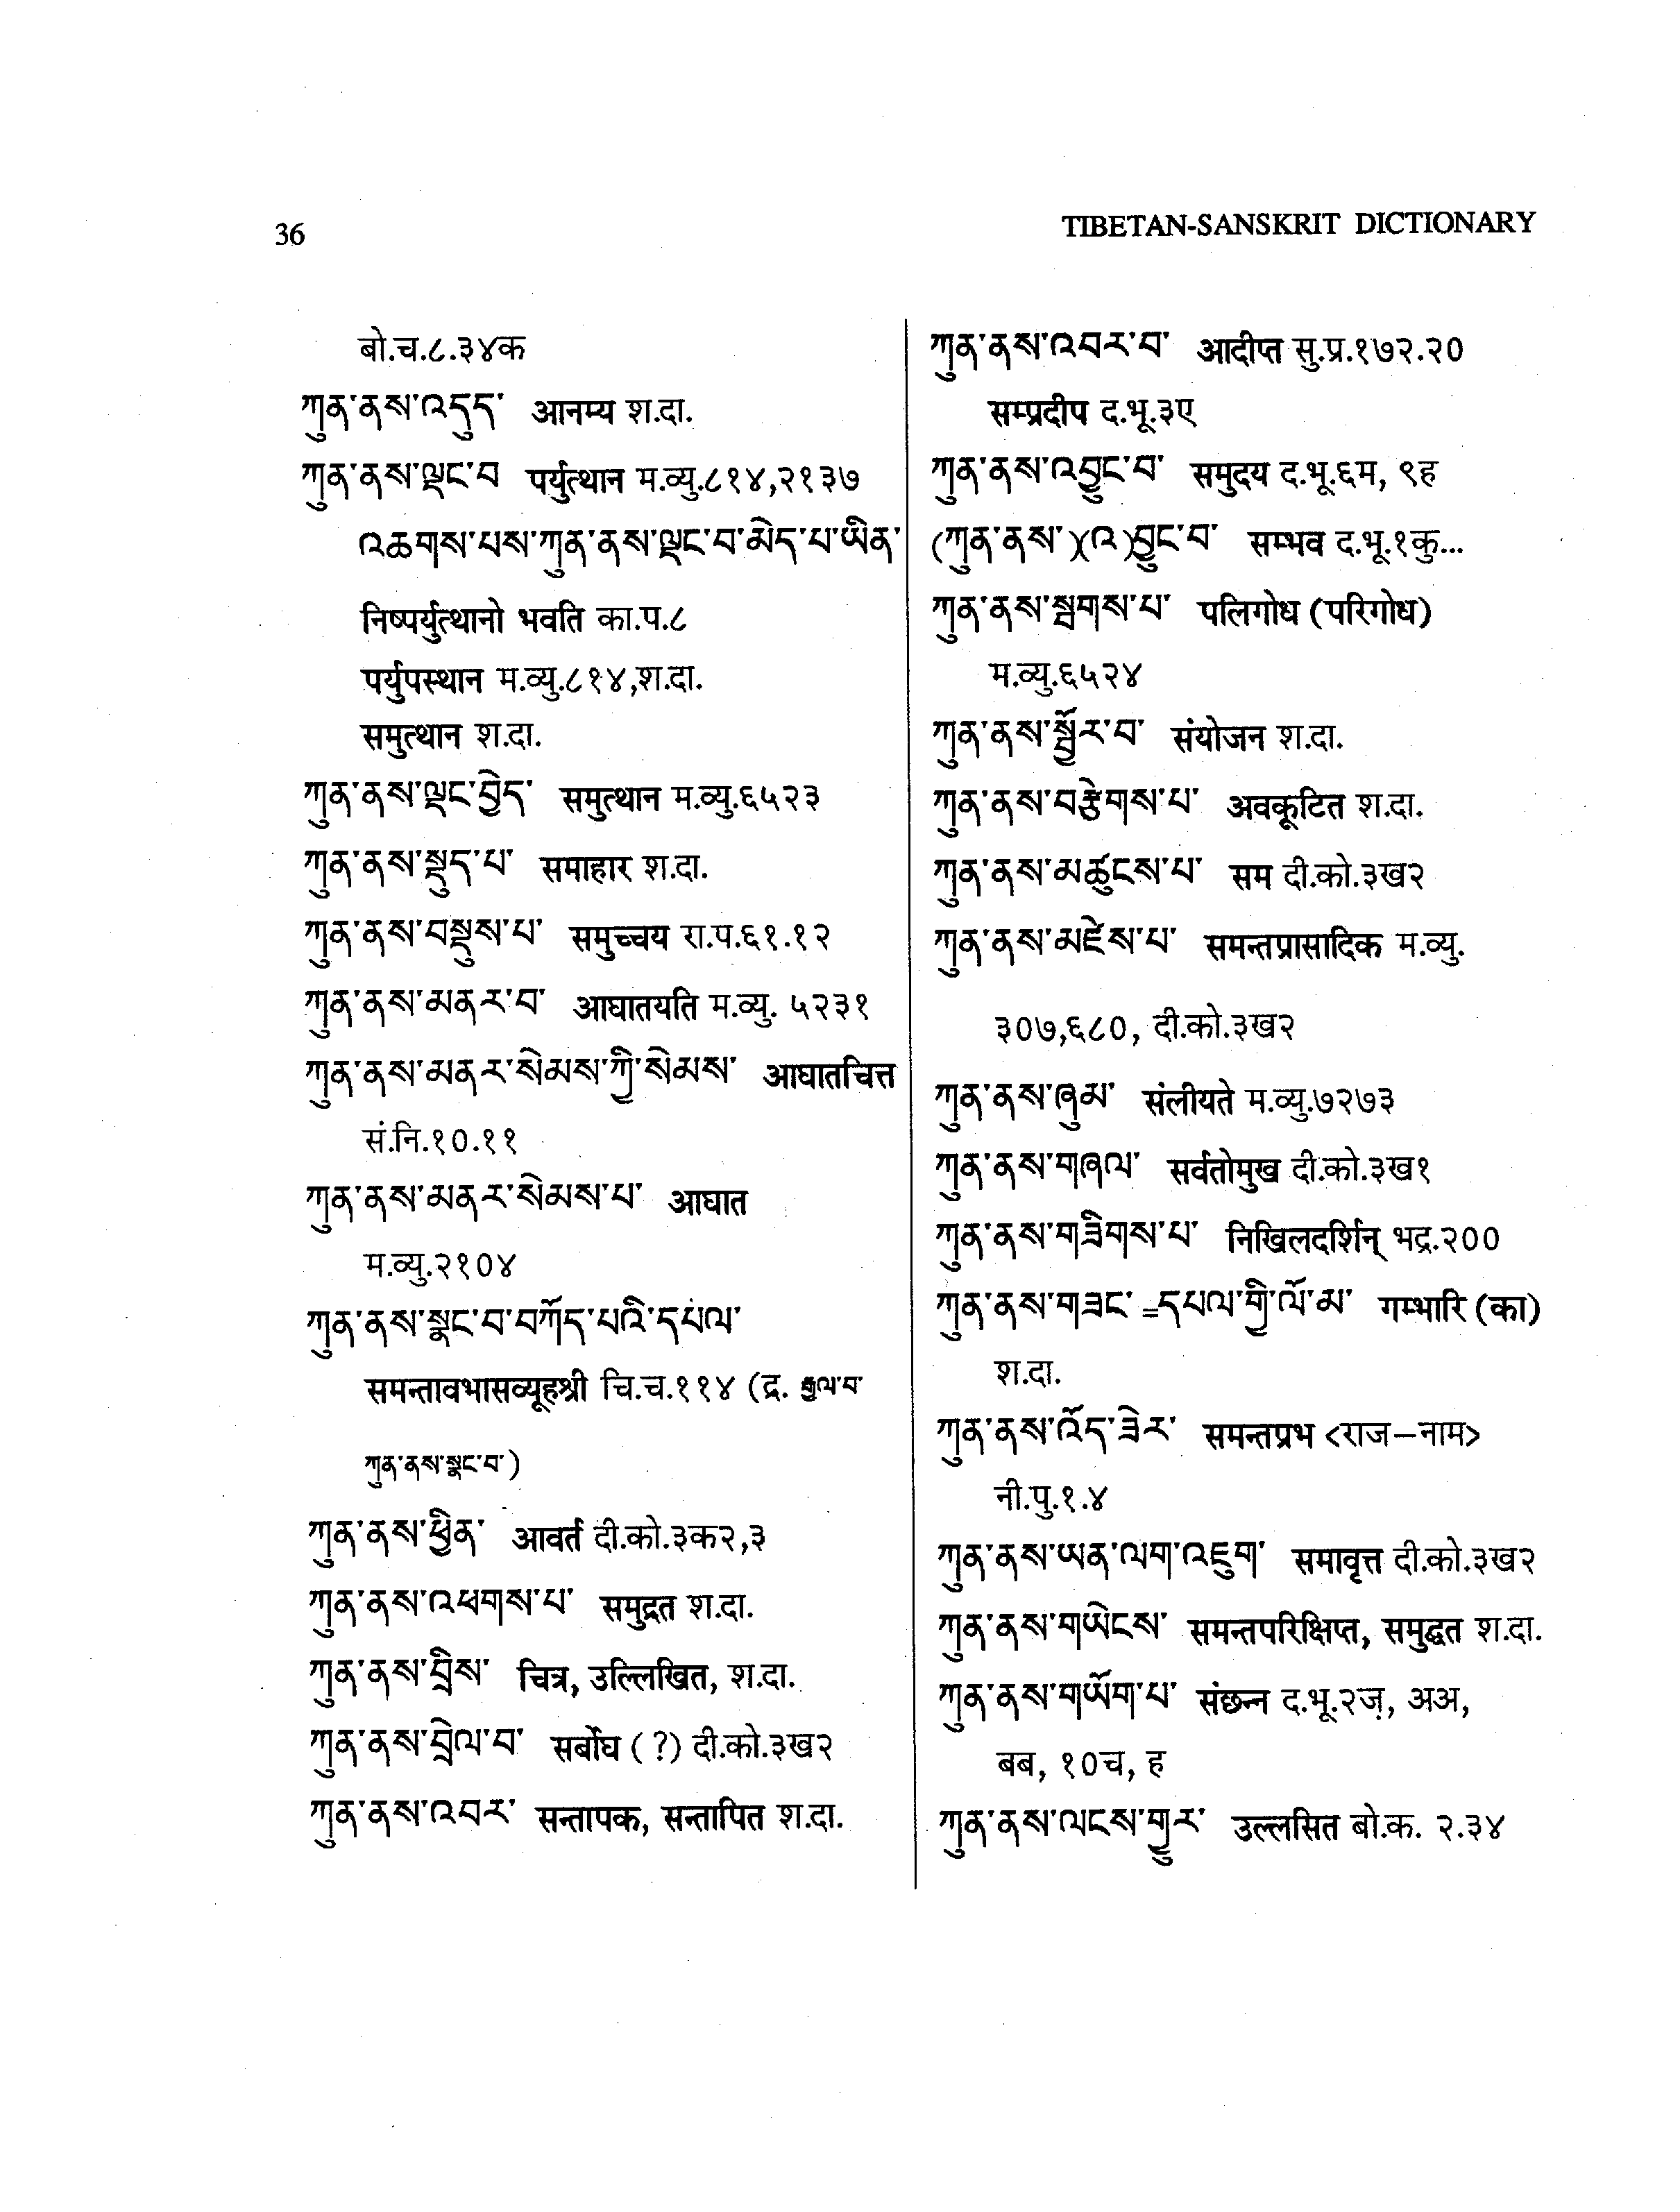 36
TIBETAN-SANSKRIT DICTIONARY
बो.च.८.३४क
ཀུན་ནས་འདུད་ आनम्य श.दा.
ཀུན་ནས་ལྡང་བ पर्युत्थान म.व्यु.८१४,२१३७
འཆགས་པས་ཀུན་ནས་ལྡང་བ་མེད་པ་ཡིན་
निष्पर्युत्थानो भवति का.प.८
पर्युपस्थान म.व्यु.८१४,श.दा.
समुत्थान श.दा.
ཀུན་ནས་ལྡང་བྱེད་ समुत्थान म.व्यु.६५२३
ཀུན་ནས་སྡུད་པ་ समाहार श.दा.
ཀུན་ནས་བསྡུས་པ་ समुच्चय रा.प.६१.१२
ཀུན་ནས་མནར་བ་ आघातयति म.व्यु. ५२३१
ཀུན་ནས་མནར་སེམས་ཀྱི་སེམས་ आघातचित्त
सं.नि.१०.११
ཀུན་ནས་མནར་སེམས་པ་ आघात
म.व्यु.२१०४
ཀུན་ནས་སྣང་བ་བཀོད་པའི་དཔལ་
समन्तावभासव्यूहश्री चि.च.११४ (द्र. རྒྱལ་བ་
ཀུན་ནས་སྣང་བ་)
ཀུན་ནས་ཕྱིན་ आवर्त दी.को.३क२,३
ཀུན་ནས་འཕགས་པ་ समुद्गत श.दा.
ཀུན་ནས་བྲིས་ चित्र, उल्लिखित, श.दा.
ཀུན་ནས་བྲེལ་བ་ सर्बोघ (?) दी.को.३ख२
ཀུན་ནས་འབར་ सन्तापक, सन्तापित श.दा.
ཀུན་ནས་འབར་བ་ आदीप्त सु.प्र.१७२.२०
सम्प्रदीप द.भू.३ए
ཀུན་ནས་འབྱུང་བ་ समुदय द.भू.६म, ९ह
(ཀུན་ནས་)(འ)བྱུང་བ་ सम्भव द.भू.१कु...
ཀུན་ནས་སྦགས་པ་ पलिगोध (परिगोध)
म.व्यु.६५२४
ཀུན་ནས་སྦྱོར་བ་ संयोजन श.दा.
ཀུན་ནས་བརྩེགས་པ་ अवकूटित श.दा.
ཀུན་ནས་མཚུངས་པ་ सम दी.को.३ख२
ཀུན་ནས་མཛེས་པ་ समन्तप्रासादिक म.व्यु.
३०७,६८०, दी.को.३ख२
ཀུན་ནས་ཞུམ་ संलीयते म.व्यु.७२७३
ཀུན་ནས་གཞལ་ सर्वतोमुख दी.को.३ख१
ཀུན་ནས་གཟིགས་པ་ निखिलदर्शिन् भद्र.२००
ཀུན་ནས་གཟང་=དཔལ་གྱི་ལོ་མ་ गम्भारि (का)
श.दा.
ཀུན་ནས་འོད་ཟེར་ समन्तप्रभ <राज–नाम>
नी.पु.१.४
ཀུན་ནས་ཡན་ལག་འཇུག་ समावृत्त दी.को.३ख२
ཀུན་ནས་གཡེངས་ समन्तपरिक्षिप्त, समुद्धत श.दा.
ཀུན་ནས་གཡོག་པ་ संछन्न द.भू.२ज़, अअ,
बब, १०च, ह
ཀུན་ནས་ལངས་གྱུར་ उल्लसित बो.क. २.३४